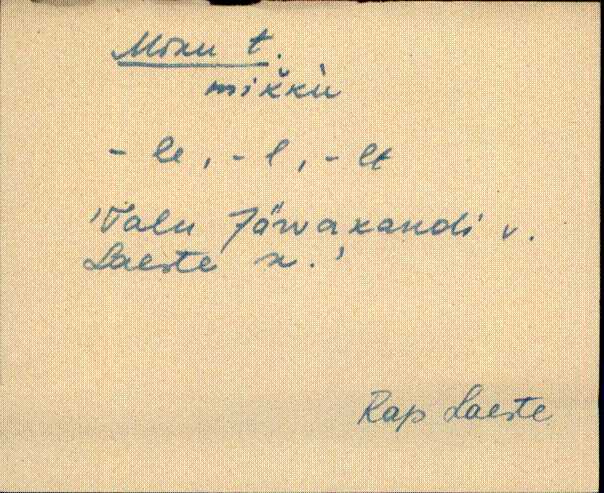 Miku t.
mik̆kù
- le, - l, - lt
'Talu Järvakandi v.
Laeste k.'
Rap Laeste